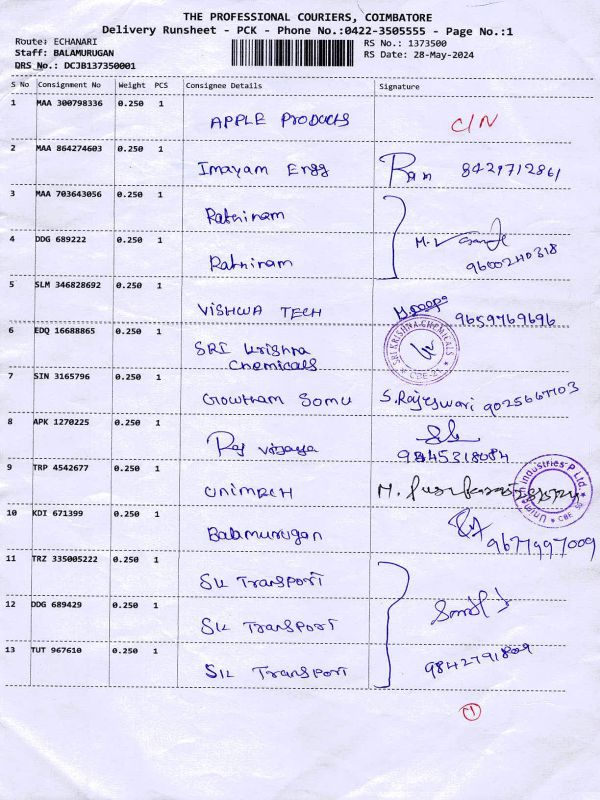 THE PROFESSIONAL COURIERS, COIMBATORE
Delivery Runsheet - PCK - Phone No.:0422-3505555 - Page No.:1
Route: ECHANARI
RS No.: 1373500
Staff: BALAMURUGAN
RS Date: 28-May-2024
DRS No.: DCJB137350001
S No Consignment No Weight PCS Consignee Details Signature
1 MAA 300798336 0.250 1 APPLE PRODUCTS C/N
2 MAA 864274603 0.250 1 Imayam Engg Ram 8429712861
3 MAA 703643056 0.250 1 Rathinam
4 DDG 689222 0.250 1 Rathinam M. 9600240318
5 SLM 346828692 0.250 1 VISHWA TECH 9659769696
6 EDQ 16688865 0.250 1 SRI Krishna
Chemicals
SRI KRISHNA CHEMICALS
* CBE-21 *
7 SIN 3165796 0.250 1 Gowtham Somu S. Rajeswari
8 APK 1270225 0.250 1 Raj Vijaya 9845318084
9 TRP 4542677 0.250 1 UNIMECH M.
Industries P Ltd.
10 KDI 671399 0.250 1 Balamurugan 9677997009
11 TRZ 335005222 0.250 1 Transport
12 DDG 689429 0.250 1 Transport
13 TUT 967610 0.250 1 Transport 9842791809